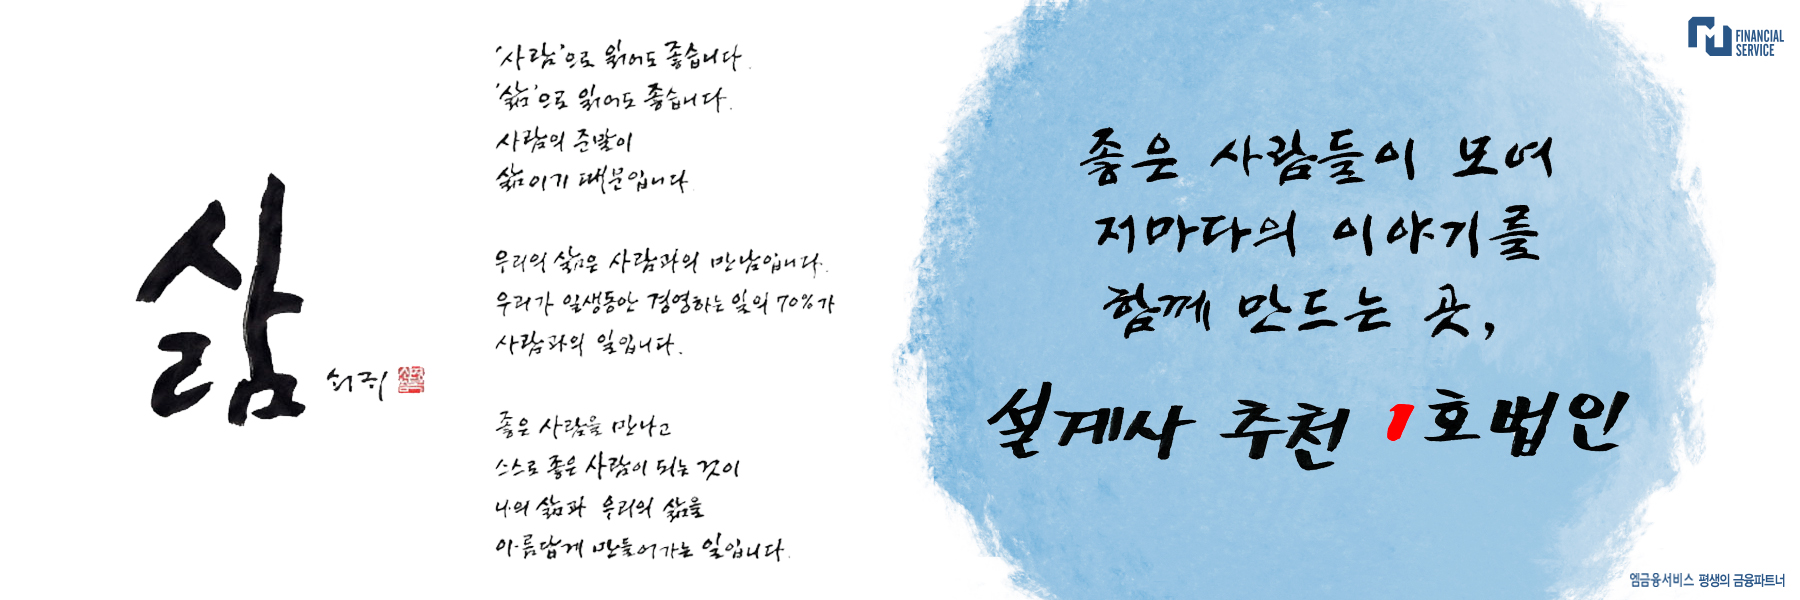 삶
쇠귀
'사람'으로 읽어도 좋습니다.
'삶'으로 읽어도 좋습니다.
사람의 준말이
삶이기 때문입니다.
우리의 삶은 사람과의 만남입니다.
우리가 일생동안 경영하는 일의 70%가
사람과의 일입니다.
좋은 사람을 만나고
스스로 좋은 사람이 되는 것이
나의 삶과 우리의 삶을
아름답게 만들어가는 일입니다.
좋은 사람들이 모여
저마다의 이야기를
함께 만드는 곳,
설계사 추천 1호법인
FINANCIAL
SERVICE
엠금융서비스 평생의 금융파트너